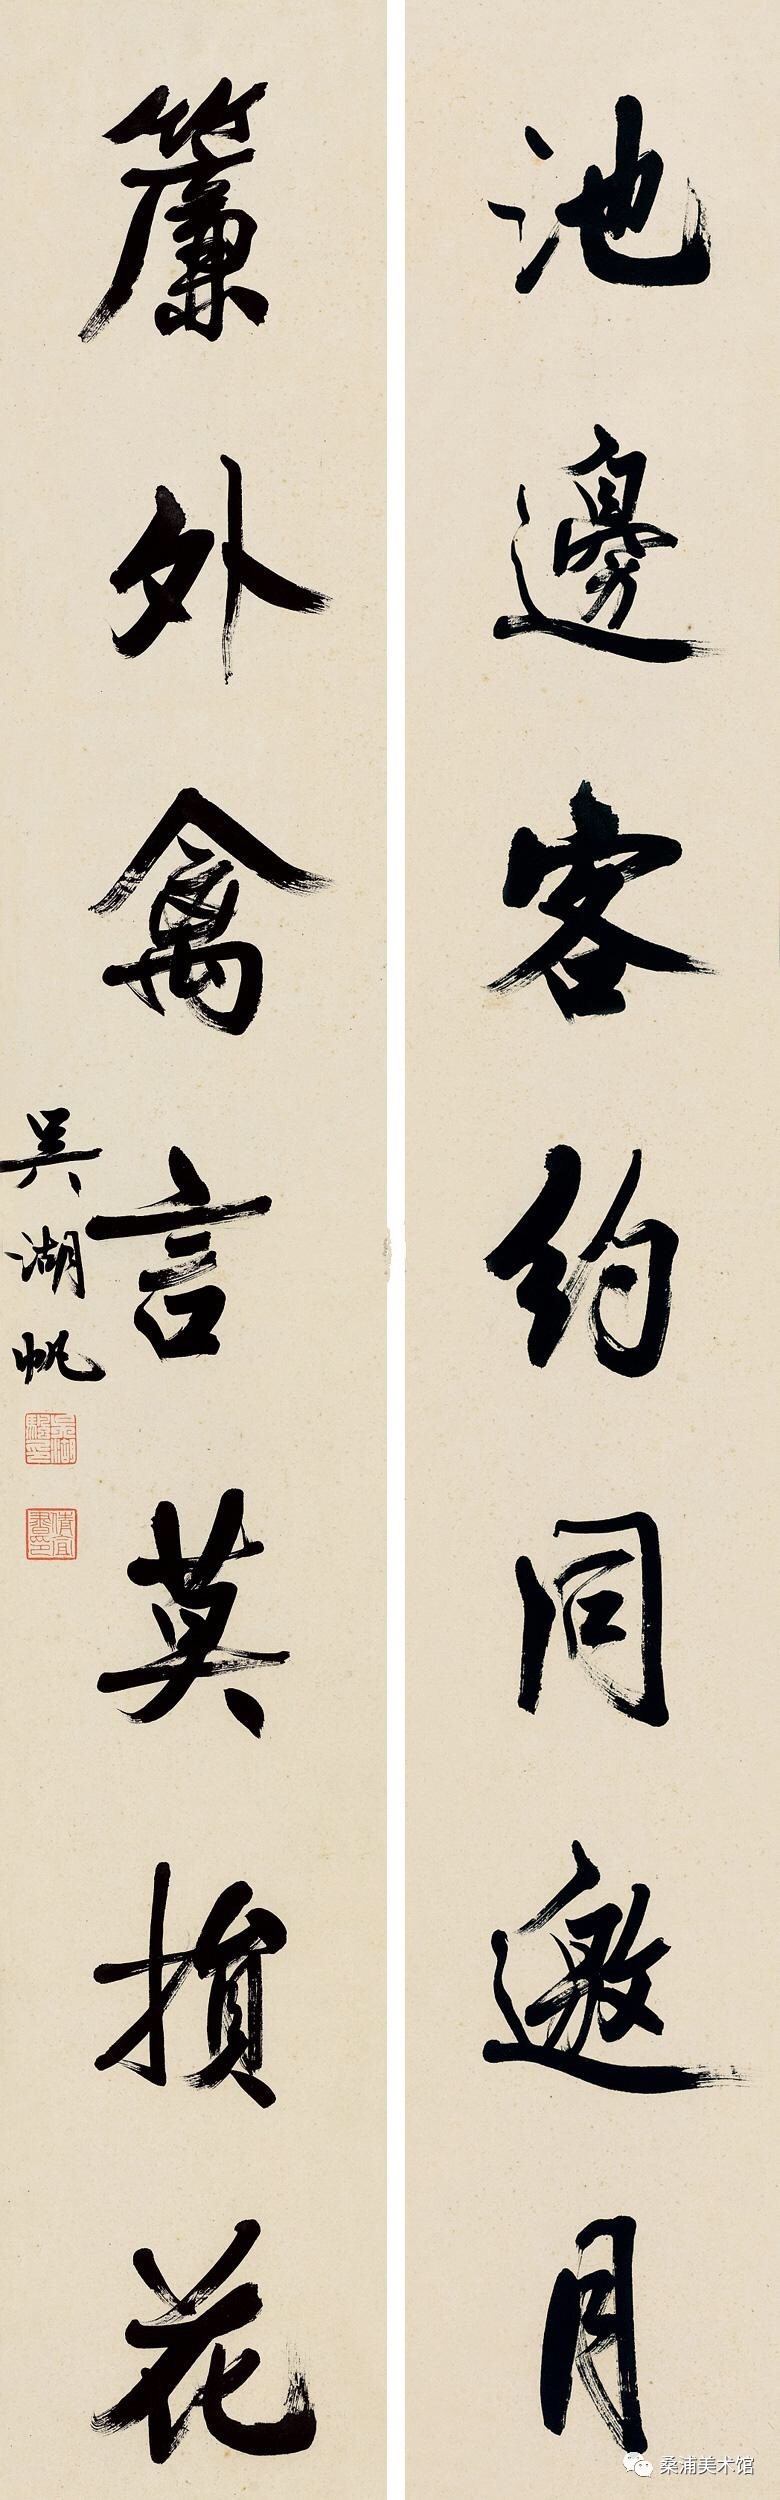 池邊客約同邀月
簾外禽言莫損花
吳湖帆
吳湖颿印
倩宜書印
桑浦美术馆